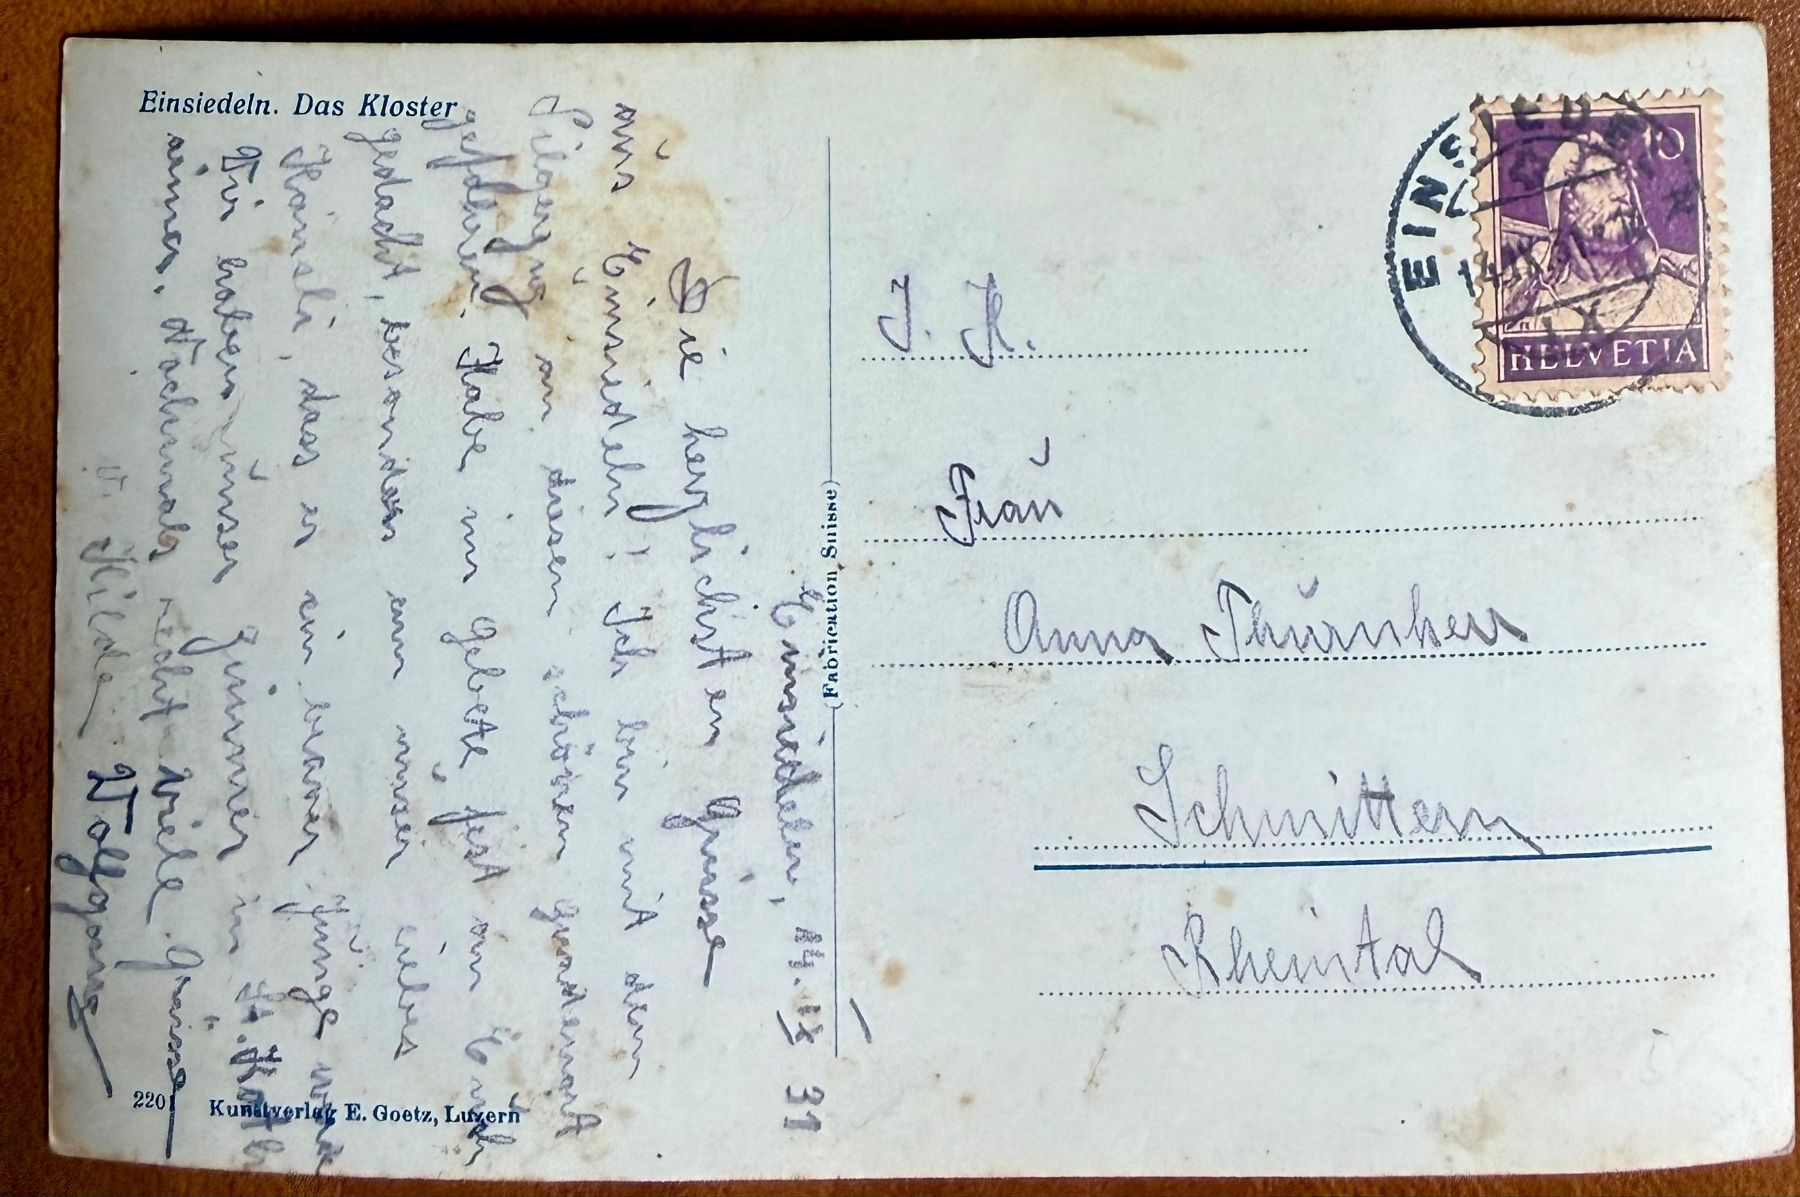 Einsiedeln. Das Kloster
Einsiedeln, 14. IX 31
Die herzlichsten Grüsse
aus Einsiedeln. Ich bin mit dem
Pilgerzug an diesen schönen
gefahren. Habe im Gebete fest an Euch
gedacht, besonders an unser liebes
Hansli, dass er ein braver Junge
Wir haben unser Zimmer in St.
Nochmals recht viele Grüsse
v. Hilda Wolfgang
220
Kunstverlag E. Goetz, Luzern
(Fabrication Suisse)
EINSIEDELN
14.IX.31
10
HELVETIA
J. K.
Frau
Anna Thurnherr
Schmittern
Rheintal